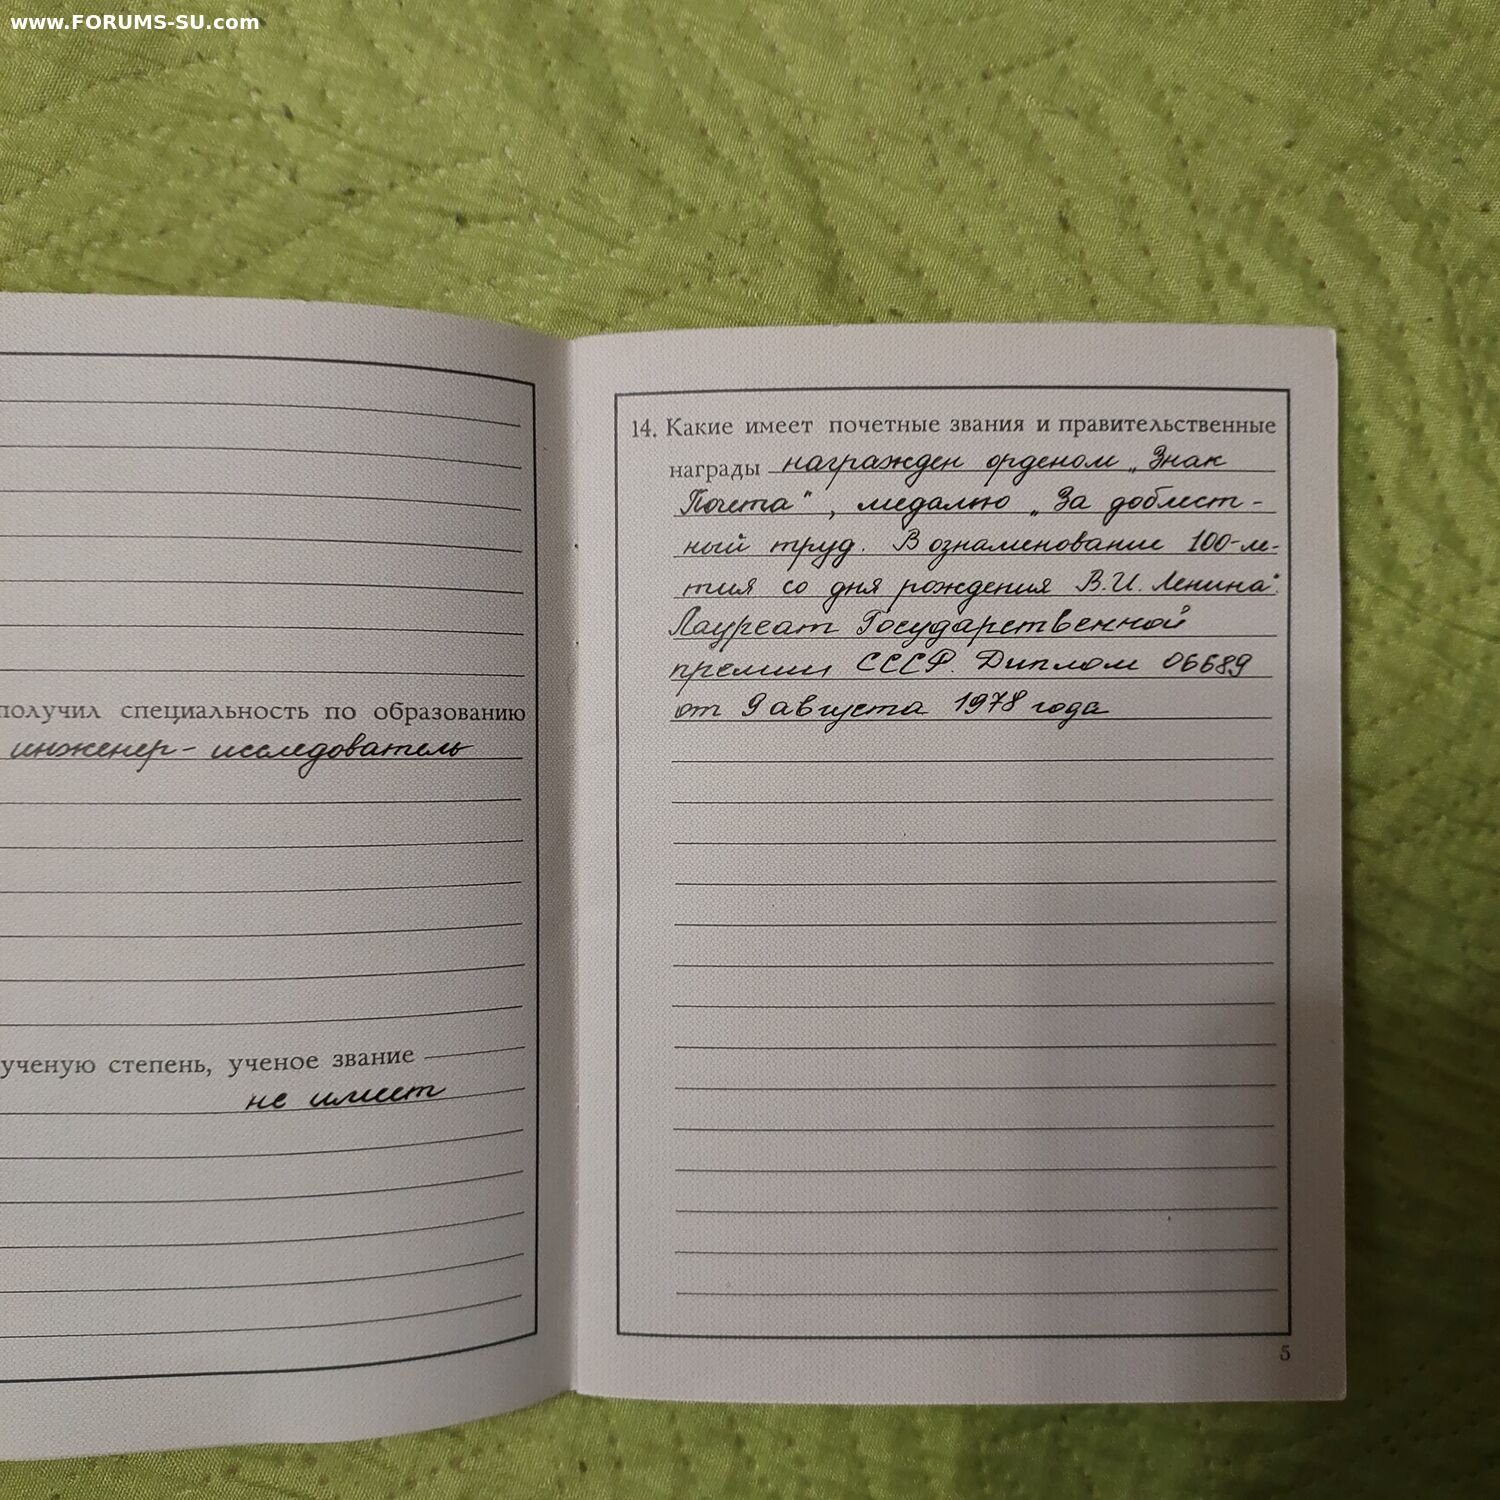 www.FORUMS-SU.com
получил специальность по образованию
инженер-исследователь
ученую степень, ученое звание
не имеет
14. Какие имеет почетные звания и правительственные
награды награжден орденом „Знак
Почета", медалью „За доблест-
ный труд. В ознаменование 100-ле-
тия со дня рождения В.И. Ленина".
Лауреат Государственной
премии СССР. Диплом 06689
от 9 августа 1978 года
5